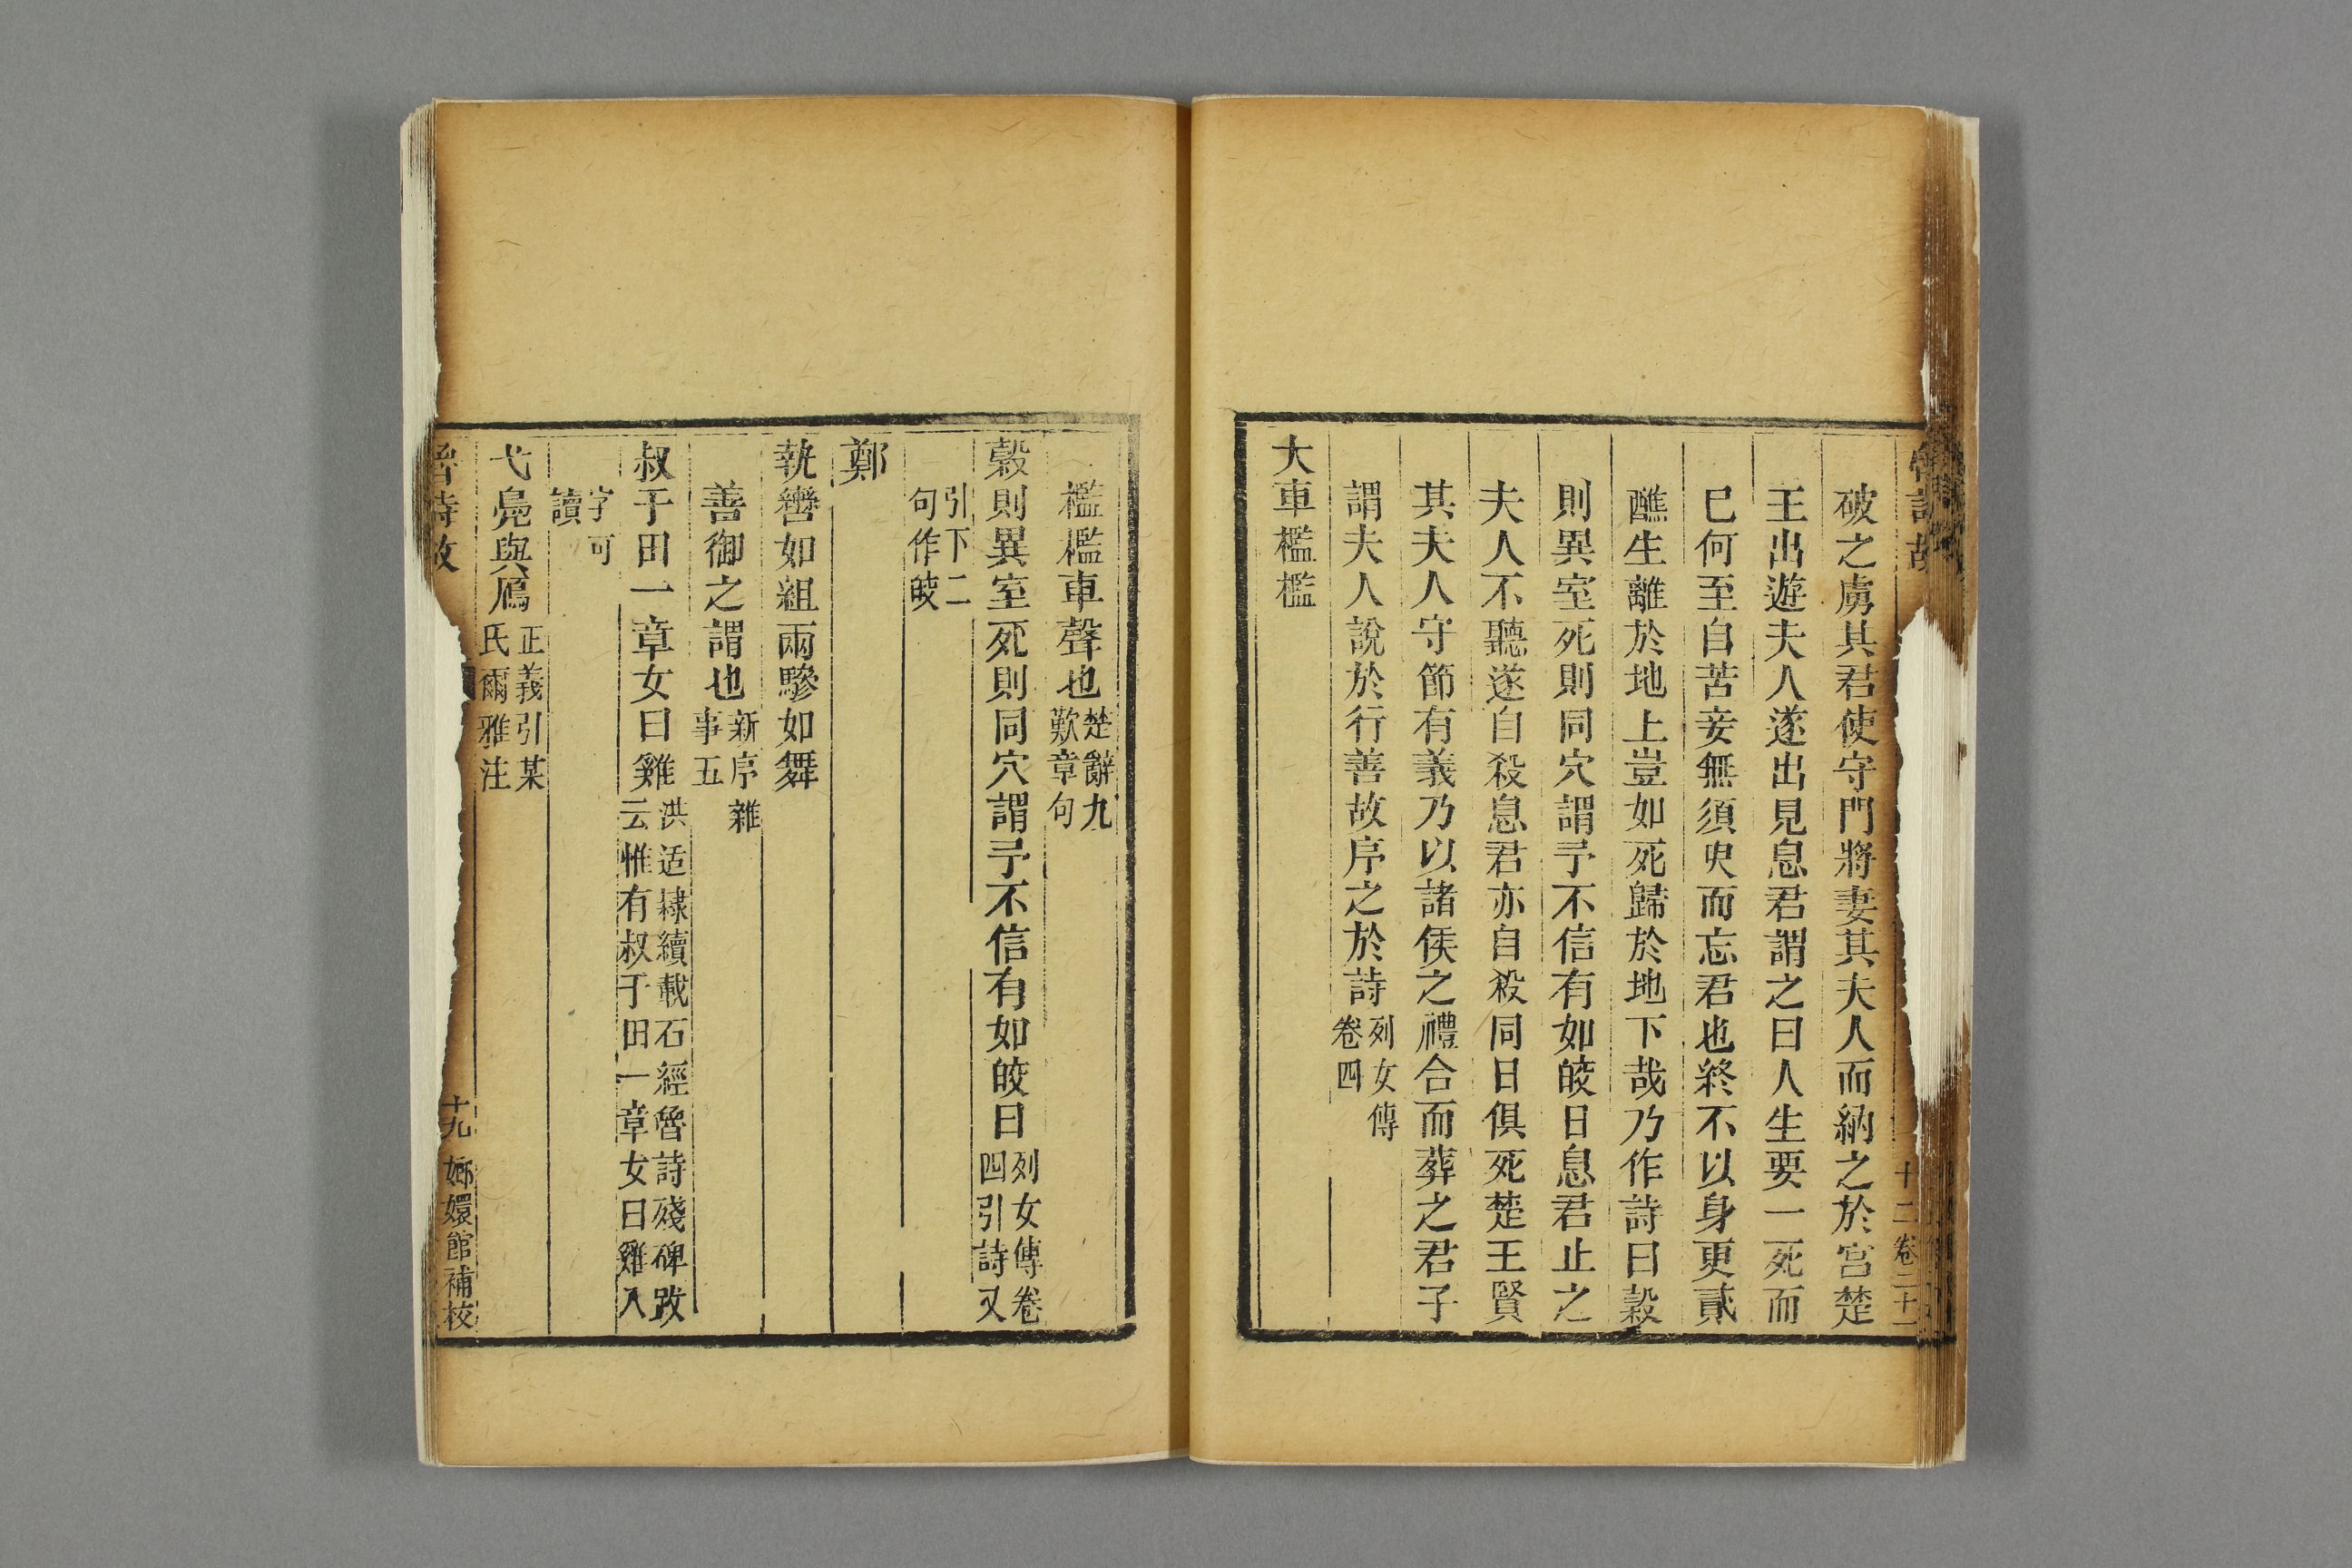 破之虜其君使守門將妻其夫人而納之於宮楚
王出遊夫人遂出見息君謂之曰人生要一死而
已何至自苦妾無須臾而忘君也終不以身更貳
醮生離於地上豈如死歸於地下哉乃作詩曰榖
則異室死則同穴謂予不信有如皎日息君止之
夫人不聽遂自殺息君亦自殺同日俱死楚王賢
其夫人守節有義乃以諸侯之禮合而葬之君子
謂夫人說於行善故序之於詩列女傳
卷四
大車檻檻
檻檻車聲也楚辭九
歎章句
榖則異室死則同穴謂予不信有如皎日列女傳卷
四引詩又
引下二
句作皎
鄭
執轡如組兩驂如舞
善御之謂也新序雜
事五
叔于田一章女曰雞洪适隸續載石經魯詩殘碑攷
云惟有叔于田一章女曰雞八
字可
讀
弋鳧與鴈正義引某
氏爾雅注
魯詩故
十九
嫏嬛館補校